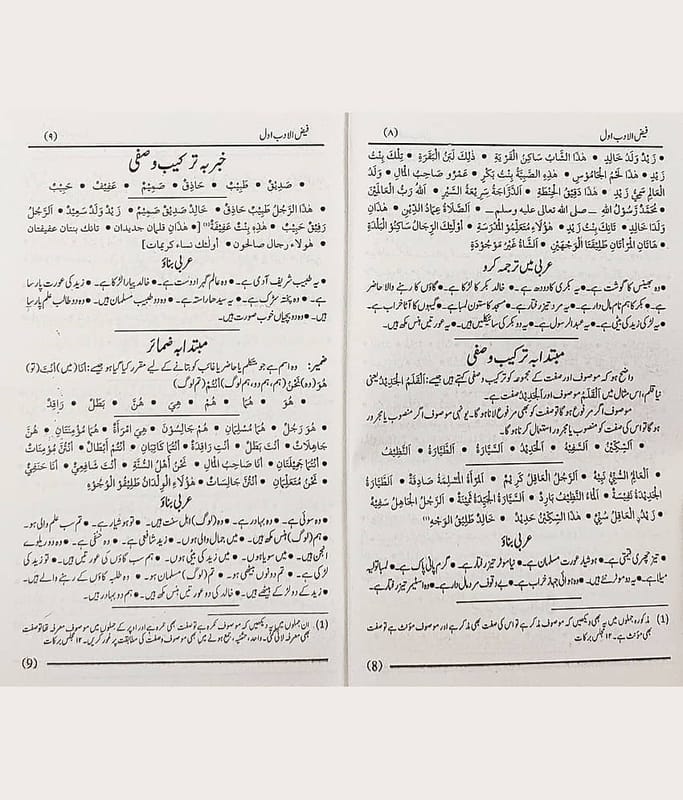 (۸) فیض الادب اول
• زَیْدٌ وَلَدُ خَالِدٍ • هٰذَا الشَّابُّ سَاكِنُ الْقَرْیَةِ • ذٰلِكَ لَبَنُ الْبَقَرَةِ • تِلْكَ بِنْتُ
زَیْدٍ • هٰذَا لَحْمُ الْجَامُوْسِ • هٰذِهِ الصَّبِیَّةُ بِنْتُ بَكْرٍ • عَمْرٌو صَاحِبُ الْمَالِ • وَلَدُ
الْعَالِمِ سَمِیُّ زَیْدٍ • هٰذَا دَقِیْقُ الْحِنْطَةِ • الدَّرَّاجَةُ سَرِیْعَةُ السَّیْرِ • اَللهُ رَبُّ الْعَالَمِیْنَ
• مُحَمَّدٌ رَّسُوْلُ اللهِ ــ صلی الله تعالی علیه وسلم ــ • اَلصَّلَاةُ عِمَادُ الدِّیْنِ • هٰذَانِ
وَلَدَا خَالِدٍ • تَانِكَ بِنْتَا زَیْدٍ • هٰؤُلَاءِ مُتَعَلِّمُو الْمَدْرَسَةِ • اُوْلٰئِكَ الرِّجَالُ سَاكِنُو الْبَلْدَةِ
• هَاتَانِ الْمَرْأَتَانِ طَلِیْقَتَا الْوَجْهَیْنِ • اَلشَّاةُ غَیْرُ مَوْجُوْدَةٍ
عربی میں ترجمہ کرو
• وہ بھینس کا گوشت ہے۔ • یہ بکری کا دودھ ہے۔ • خالد بکر کا لڑکا ہے۔ • گاؤں کا رہنے والا حاضر
ہے۔ • بکر کا ہم نام مال دار ہے۔ • یہ مرد تیز رفتار ہے۔ • مسجد کا ستون لمبا ہے۔ • گیہوں کا آٹا خراب ہے۔
• یہ لڑکی زید کی بیٹی ہے۔ • یہ عبد الرسول ہے۔ • یہ دو بکر کی سائیکلیں ہیں۔ • یہ عورتیں ہنس مکھ ہیں۔
مبتدا بہ ترکیب وصفی
واضح ہو کہ موصوف اور صفت کے مجموعہ کو ترکیب وصفی کہتے ہیں جیسے: اَلْقَلَمُ الْجَدِیْدُ یعنی
نیا قلم، اس مثال میں اَلْقَلَمُ موصوف اور اَلْجَدِیْدُ صفت ہے۔
موصوف اگر مرفوع ہوگا تو صفت کو بھی مرفوع لانا ہوگا۔ یوں ہی موصوف اگر منصوب یا مجرور
ہوگا تو اس کی صفت کو منصوب یا مجرور استعمال کرنا ہوگا۔
اَلسِّكِّیْنُ • اَلسَّفِیْهُ • اَلْحَدِیْدُ • اَلسَّیَّارَةُ • اَلطَّیَّارَةُ • اَلنَّظِیْفُ
• اَلْعَالِمُ السُّنِّیُّ نَبِیْهٌ • اَلرَّجُلُ الْعَاقِلُ كَرِیْمٌ • اَلْمَرْأَةُ الْمُسْلِمَةُ صَادِقَةٌ • اَلطَّیَّارَةُ
الْجَدِیْدَةُ نَفِیْسَةٌ • اَلْمَاءُ النَّظِیْفُ بَارِدٌ • اَلسَّیَّارَةُ الْجَیِّدَةُ ثَمِیْنَةٌ • اَلرَّجُلُ الْجَاهِلُ سَفِیْهٌ
• زَیْدٌ الْعَاقِلُ سُنِّیٌّ • هٰذَا السِّكِّیْنُ حَدِیْدٌ • خَالِدٌ طَلِیْقُ الْوَجْهِ⁽¹⁾
عربی بناؤ
• تیز چھری قیمتی ہے۔ • ہوشیار عورت مسلمان ہے۔ • نیا موٹر تیز رفتار ہے۔ • گرم پانی پاک ہے۔ • لمبا تولیہ
میلا ہے۔ • یہ دو موٹر نئے ہیں۔ • وہ ہوائی جہاز خراب ہے۔ • بے وقوف مرد مال دار ہے۔ • وہ اسٹیمر تیز رفتار ہے۔
(1) مذکورہ جملوں میں یہ دیکھیں کہ موصوف مذکر ہے تو اس کی صفت بھی مذکر ہے اور موصوف مؤنث ہے تو صفت
بھی مؤنث ہے۔ ۱۲ مجلس برکات
(8)
(۹) فیض الادب اول
خبر بہ ترکیب وصفی
• صَدِیْقٌ • طَبِیْبٌ • حَاذِقٌ • صَمِیْمٌ • عَفِیْفٌ • حَبِیْبٌ
• هٰذَا الرَّجُلُ طَبِیْبٌ حَاذِقٌ • خَالِدٌ صَدِیْقٌ صَمِیْمٌ • زَیْدٌ وَلَدٌ سَعِیْدٌ • اَلرَّجُلُ
رَفِیْقٌ حَبِیْبٌ • هٰذِهِ بِنْتٌ عَفِیْفَةٌ⁽¹⁾ [ • هٰذَانِ قلمان جدیدان • تانك بنتان عفیفتان
• هٰولاء رجال صالحون • أولئك نساء كریمات]
عربی بناؤ
• یہ طبیب شریف آدمی ہے۔ • وہ عالم گہرا دوست ہے۔ • خالد پیارا لڑکا ہے۔ • زید کی عورت پارسا
ہے۔ • وہ پختہ سڑک ہے۔ • یہ سیدھا راستہ ہے۔ • وہ دو طبیب مسلمان ہیں۔ • وہ دو طالب علم پارسا
ہیں۔ • وہ دو بچیاں خوب صورت ہیں۔
مبتدا بہ ضمائر
ضمیر: وہ اسم ہے جو متکلم یا حاضر یا غائب کو بتانے کے لیے مقرر کیا گیا ہو جیسے: اَنَا (میں) اَنْتَ (تو)
هُوَ (وہ) نَحْنُ (ہم، ہم دو، ہم لوگ) اَنْتُمْ (تم لوگ)
هُوَ • هُمَا • هُمْ • هِیَ • هُنَّ • بَطَلٌ • رَاقِدٌ
• هُوَ رَجُلٌ • هُمَا مُسْلِمَانِ • هُمْ جَالِسُوْنَ • هِیَ امْرَأَةٌ • هُمَا مُؤْمِنَتَانِ • هُنَّ
جَاهِلَاتٌ • اَنْتَ بَطَلٌ • اَنْتِ رَاقِدَةٌ • اَنْتُمَا كَاتِبَانِ • اَنْتُمْ أَبْطَالٌ • اَنْتُنَّ مُؤْمِنَاتٌ
• اَنْتُمَا جَمِیْلَتَانِ • اَنَا صَاحِبُ الْمَالِ • نَحْنُ أَهْلُ السُّنَّةِ • اَنْتَ شَافِعِیٌّ • اَنَا حَنَفِیٌّ
• نَحْنُ مُتَعَلِّمَانِ • اَنْتُنَّ جَالِسَاتٌ • هٰؤُلَاءِ الْوِلْدَانُ طَلِیْقُو الْوُجُوْهِ
عربی بناؤ
• وہ سوئی ہے۔ • وہ بہادر ہے۔ • وہ (لوگ) اہل سنت ہیں۔ • تو ہوشیار ہے۔ • تم سب علم والی ہو۔
• ہم (لوگ) ہنس مکھ ہیں۔ • میں جمال والی ہوں۔ • زید شافعی ہے۔ • وہ حنفی ہے۔ • وہ دو ریلوے
انجن ہیں۔ • میں سویا ہوں۔ • میں زید کی بیٹی ہوں۔ • ہم سب گاؤں کی عورتیں ہیں۔ • تو زید کی
لڑکی ہے۔ • تم دونوں بیٹھی ہو۔ • تم (لوگ) مسلمان ہو۔ • وہ طلبہ گاؤں کے رہنے والے ہیں۔
• زید کے دو لڑکے بیٹھے ہیں۔ • خالد کی دو عورتیں ہنس مکھ ہیں۔ • ہم دو بہادر ہیں۔
(1) ان جملوں میں یہ دیکھیں کہ موصوف نکرہ ہے تو صفت بھی نکرہ ہے اور اوپر کے جملوں میں موصوف معرفہ تھا تو صفت
بھی معرفہ لائی گئی۔ واحد، تثنیہ، جمع ہونے میں بھی موصوف و صفت کی مطابقت پر غور کریں۔ ۱۲ مجلس برکات
(9)